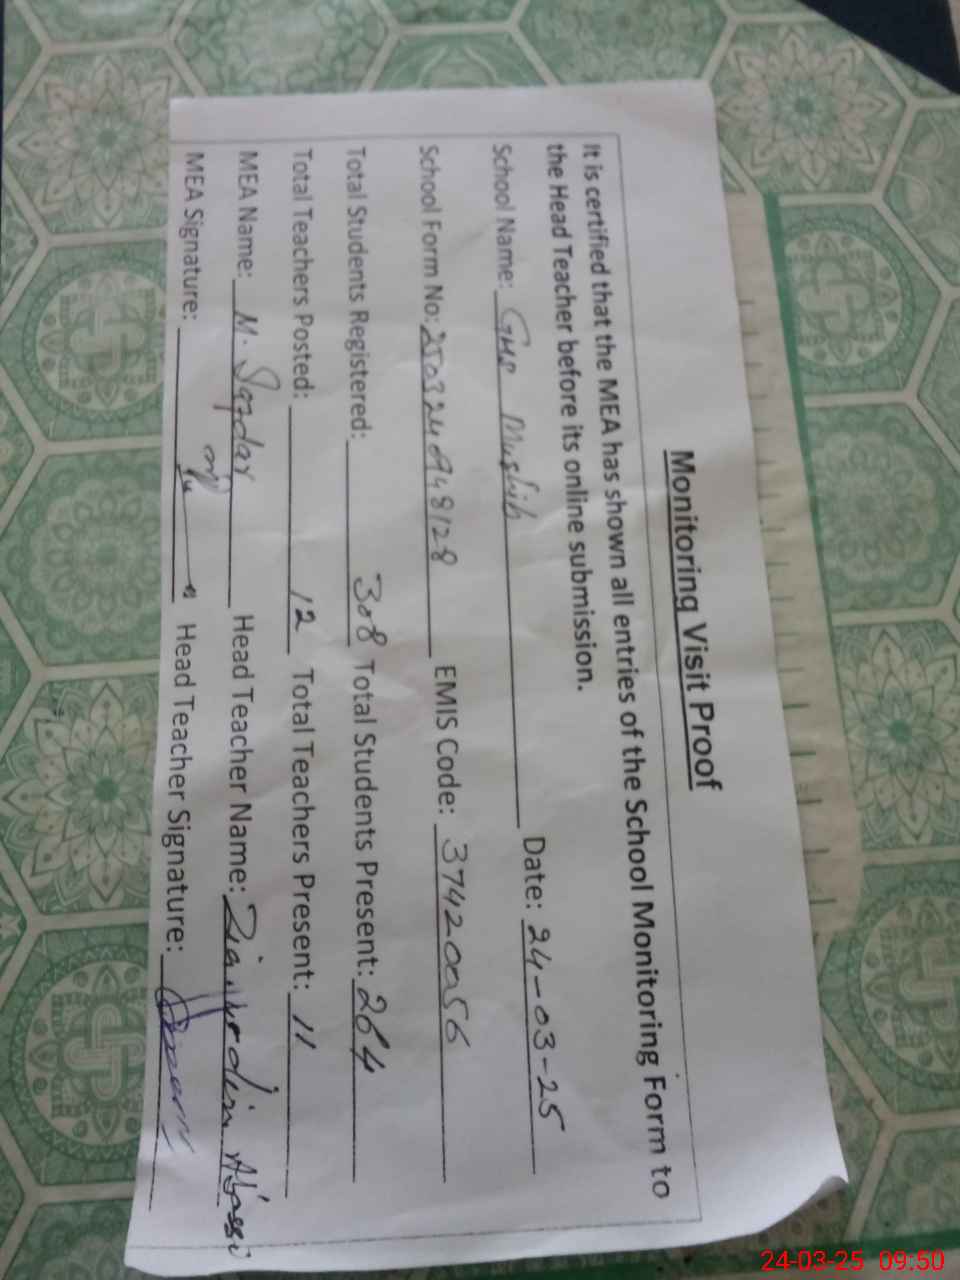 Monitoring Visit Proof
It is certified that the MEA has shown all entries of the School Monitoring Form to
the Head Teacher before its online submission.
School Name: GHS Date: 24-03-25
School Form No: 250324948128 EMIS Code: 37420056
Total Students Registered: 308 Total Students Present: 264
Total Teachers Posted: 12 Total Teachers Present: 11
MEA Name: M. Head Teacher Name: Abassi
MEA Signature: Head Teacher Signature:
24-03-25 09:50